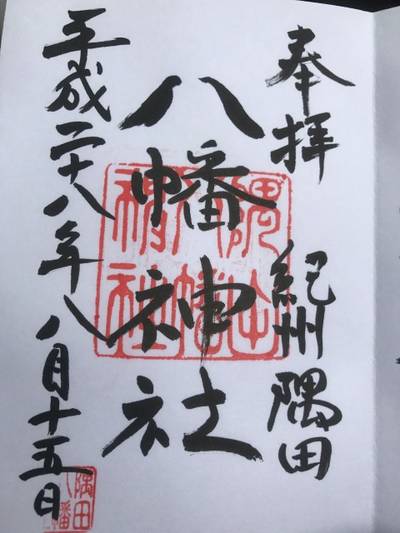 奉拝 紀州隅田
八幡神社
平成二十八年八月十五日
隅田八幡